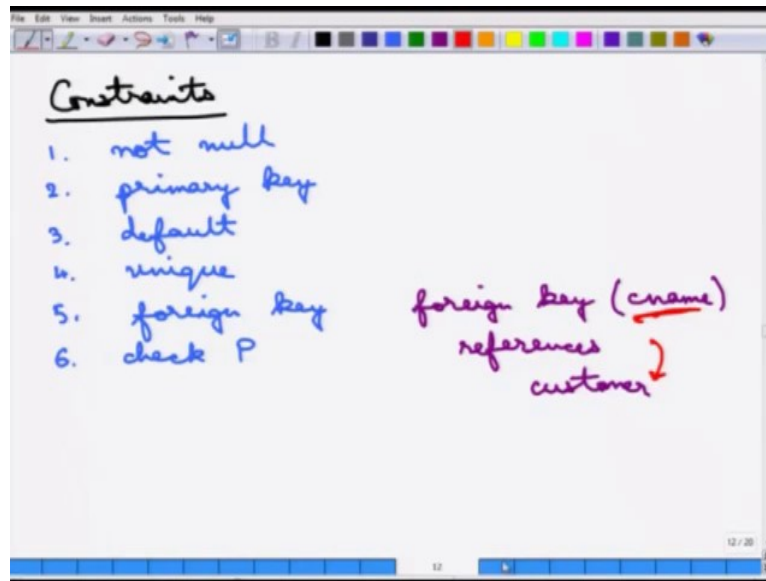 File Edit View Insert Actions Tools Help
B I
Constraints
1. not null
2. primary key
3. default
4. unique
5. foreign key
6. check P
foreign key (cname)
references
customer
12 / 20
12